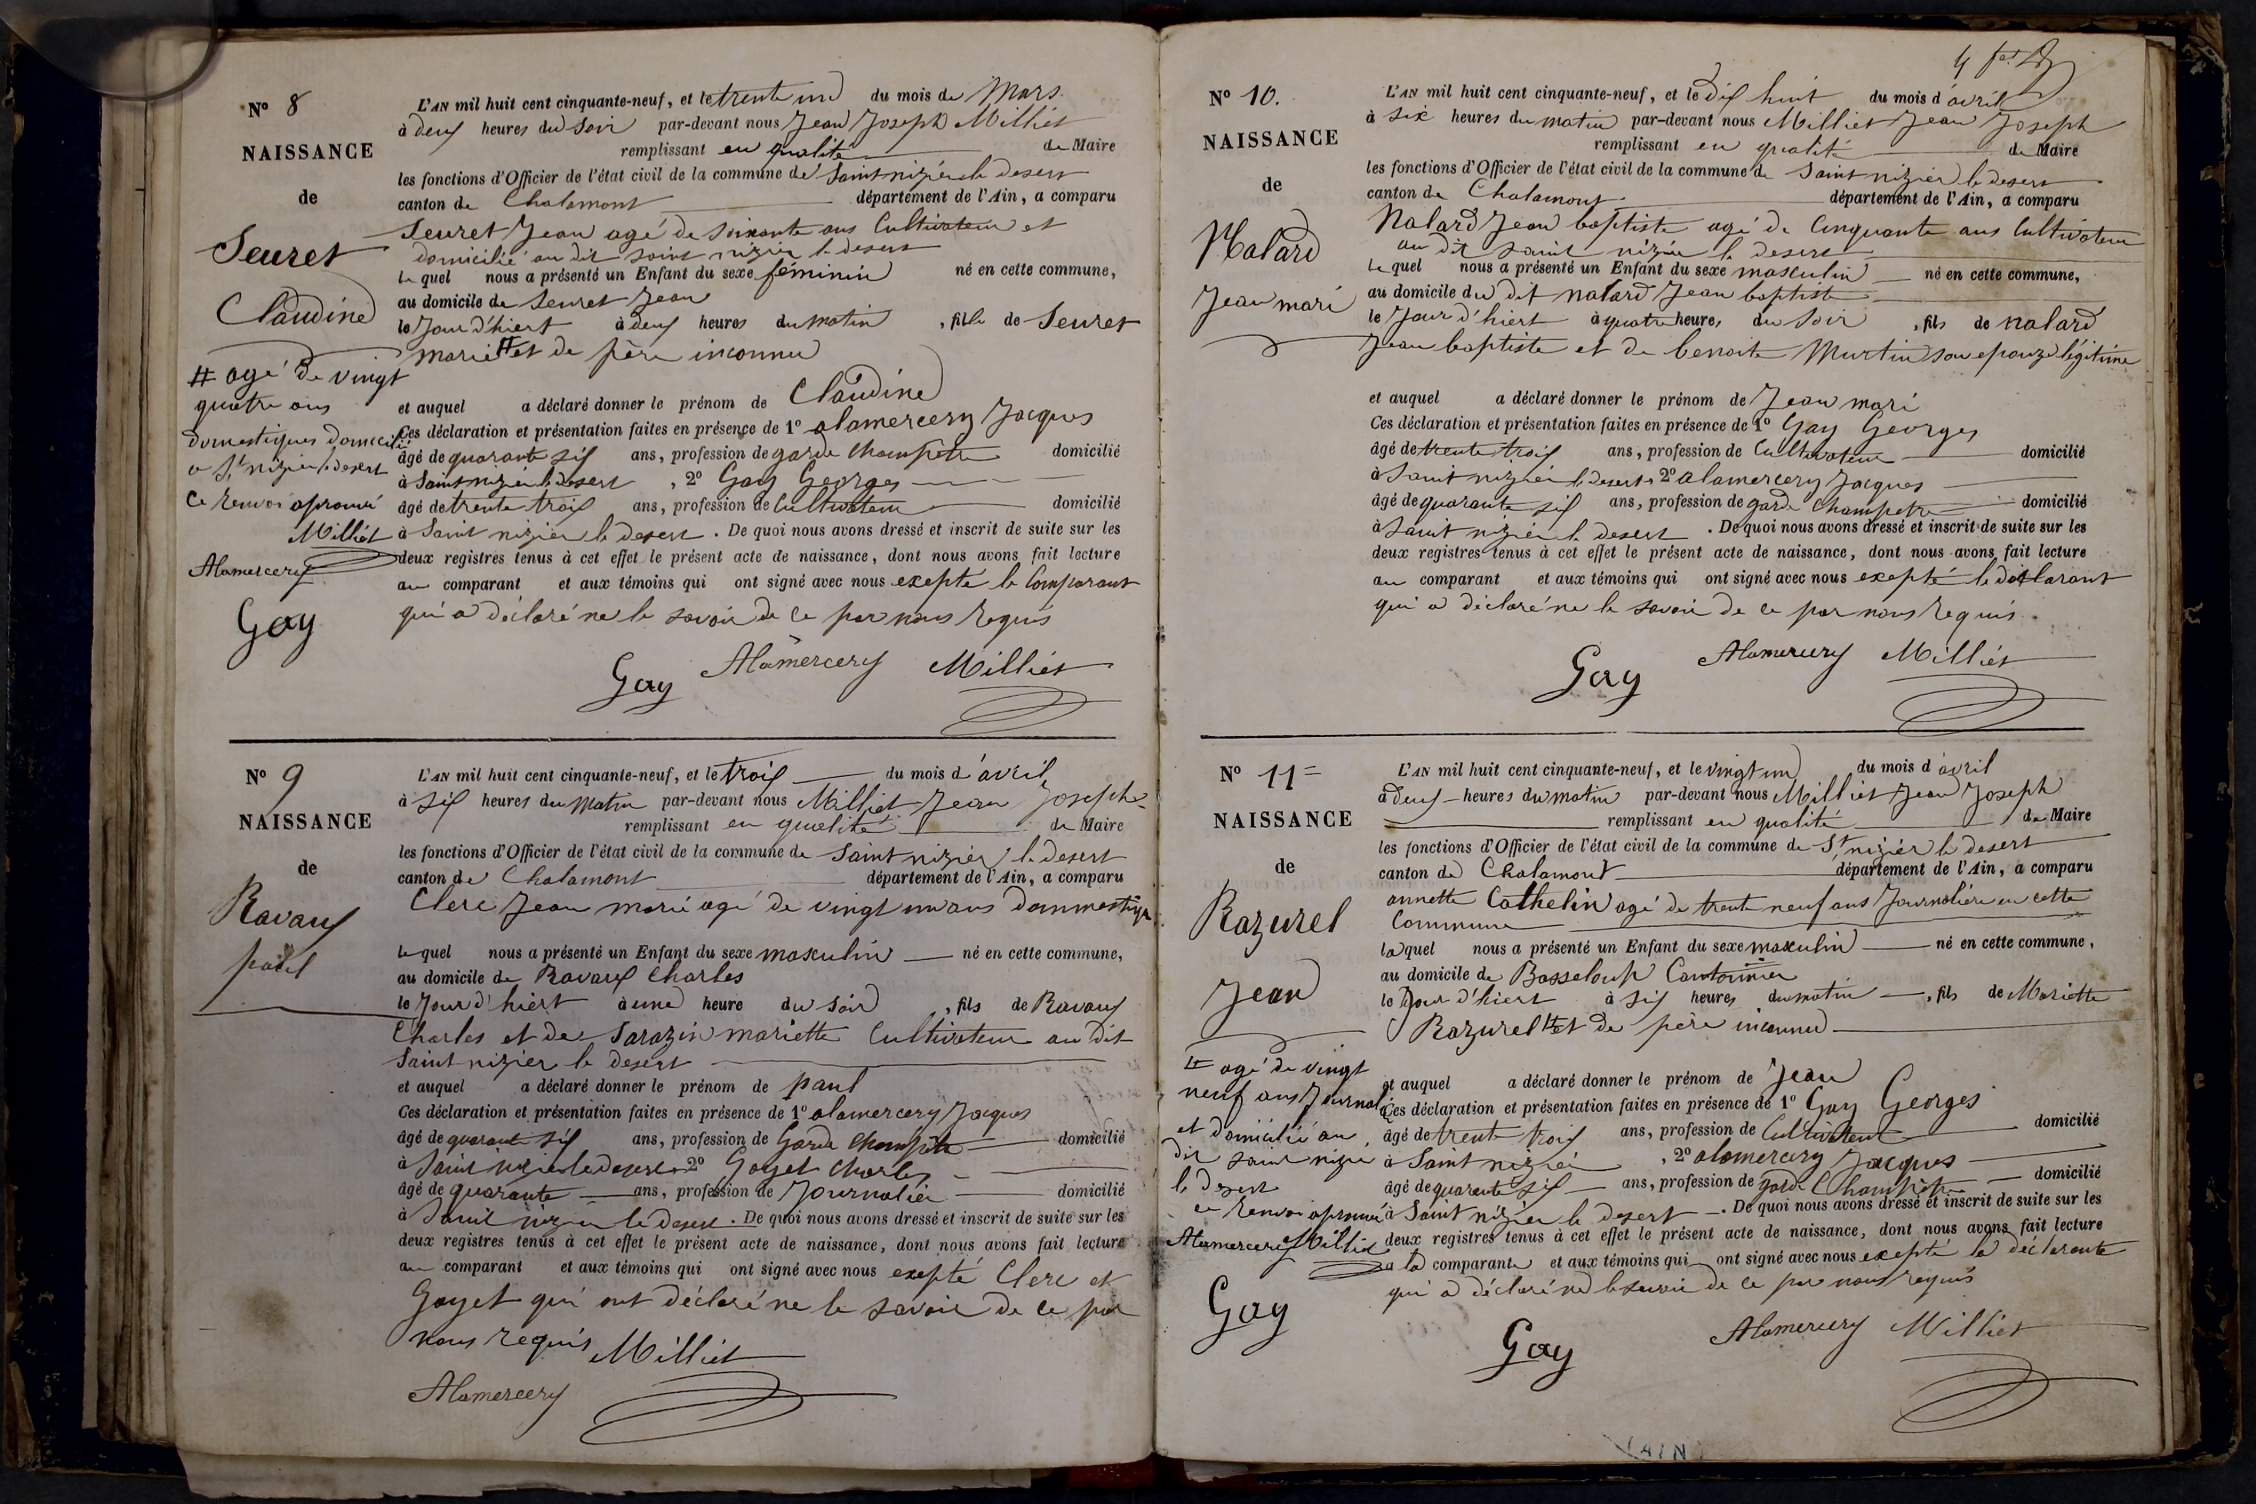 N° 8
NAISSANCE
de
Seuret
Claudine
# agé de vingt
quatre ans
domestiques domicilié
a St nizier le desert
ce renvoi aprouvé
Milliet
Alamercery
Gay
L'AN mil huit cent cinquante-neuf, et le trente un du mois de Mars
à deux heures du Soir par-devant nous Jean Joseph Milliet
remplissant en qualité de Maire
les fonctions d'Officier de l'état civil de la commune de Saint nizier le desert
canton de Chalamont département de l'Ain, a comparu
Seuret Jean agé de soixante ans Cultivateur et
domicilié au dit saint nizier le desert
le quel nous a présenté un Enfant du sexe féminin né en cette commune,
au domicile de Seuret Jean
le Jour d'hiert à deux heures du matin, fille de Seuret
mariette # et de père inconnu
et auquel a déclaré donner le prénom de Claudine
Ces déclaration et présentation faites en présence de 1° alamercery Jacques
âgé de quarante six ans, profession de garde champêtre domicilié
à Saint nizier le desert, 2° Gay Georges
âgé de trente trois ans, profession de Cultivateur domicilié
à Saint nizier le desert. De quoi nous avons dressé et inscrit de suite sur les
deux registres tenus à cet effet le présent acte de naissance, dont nous avons fait lecture
au comparant et aux témoins qui ont signé avec nous exepté le Comparant
qui a déclaré ne le savoir de ce par nous requis
Gay Alamercery Milliet
N° 9
NAISSANCE
de
Ravaux
paul
L'AN mil huit cent cinquante-neuf, et le trois du mois d'avril
à six heures du Matin par-devant nous Milliet Jean Joseph
remplissant en qualité de Maire
les fonctions d'Officier de l'état civil de la commune de Saint nizier le desert
canton de Chalamont département de l'Ain, a comparu
Clerc Jean marie agé de vingt un ans dommestique
le quel nous a présenté un Enfant du sexe masculin né en cette commune,
au domicile de Ravaux Charles
le Jour d'hiert à une heure du soir, fils de Ravaux
Charles et de Sarazin mariette Cultivateur au dit
Saint nizier le desert
et auquel a déclaré donner le prénom de paul
Ces déclaration et présentation faites en présence de 1° alamercery Jacques
âgé de quarante six ans, profession de Garde champêtre domicilié
à Saint nizier le desert 2° Goyet Charles
âgé de quarante ans, profession de Journalier domicilié
à Saint nizier le desert. De quoi nous avons dressé et inscrit de suite sur les
deux registres tenus à cet effet le présent acte de naissance, dont nous avons fait lecture
au comparant et aux témoins qui ont signé avec nous exepté Clerc et
Goyet qui ont déclaré ne le savoir de ce par
nous requis Milliet
Alamercery
N° 10.
NAISSANCE
de
Nalard
Jean mari
L'AN mil huit cent cinquante-neuf, et le dix huit du mois d'avril
à six heures du matin par-devant nous Milliet Jean Joseph
remplissant en qualité de Maire
les fonctions d'Officier de l'état civil de la commune de Saint nizier le desert
canton de Chalamont département de l'Ain, a comparu
Nalard Jean baptiste agé de Cinquante ans Cultivateur
au dit saint nizier le desert
le quel nous a présenté un Enfant du sexe masculin né en cette commune,
au domicile du dit nalard Jean baptiste
le Jour d'hiert à quatre heures du soir, fils de nalard
Jean baptiste et de benoite Murtin son epouze légitime
et auquel a déclaré donner le prénom de Jean mari
Ces déclaration et présentation faites en présence de 1° Gay Georges
âgé de trente trois ans, profession de Cultivateur domicilié
à Saint nizier le desert 2° alamercery Jacques
âgé de quarante six ans, profession de garde Champetre domicilié
à Saint nizier le desert. De quoi nous avons dressé et inscrit de suite sur les
deux registres tenus à cet effet le présent acte de naissance, dont nous avons fait lecture
au comparant et aux témoins qui ont signé avec nous exepté le déclarant
qui a déclaré ne le savoir de ce par nous requis
Gay Alamercery Milliet
N° 11
NAISSANCE
de
Razurel
Jean
# agé de vingt
neuf ans Journal
et domicilié au
dit saint nizier
le desert
ce renvoi aprouvé
Alamercery Milliet
Gay
L'AN mil huit cent cinquante-neuf, et le vingt un du mois d'avril
à deux heures du matin par-devant nous Milliet Jean Joseph
remplissant en qualité de Maire
les fonctions d'Officier de l'état civil de la commune de St nizier le desert
canton de Chalamont département de l'Ain, a comparu
annette Cathelin agé de trente neuf ans Journalière en cette
Commune
laquel nous a présenté un Enfant du sexe masculin né en cette commune,
au domicile de Basseloup Cantonnier
le Jour d'hiert à six heures du matin, fils de Mariette
Razurel # et de père inconnu
et auquel a déclaré donner le prénom de Jean
Ces déclaration et présentation faites en présence de 1° Gay Georges
âgé de trente trois ans, profession de Cultivateur domicilié
à Saint nizier, 2° alamercery Jacques
âgé de quarante six ans, profession de garde Champêtre domicilié
à Saint nizier le desert. De quoi nous avons dressé et inscrit de suite sur les
deux registres tenus à cet effet le présent acte de naissance, dont nous avons fait lecture
a la comparante et aux témoins qui ont signé avec nous exepté la déclarante
qui a déclaré ne le savoir de ce par nous requis
Gay Alamercery Milliet
AIN